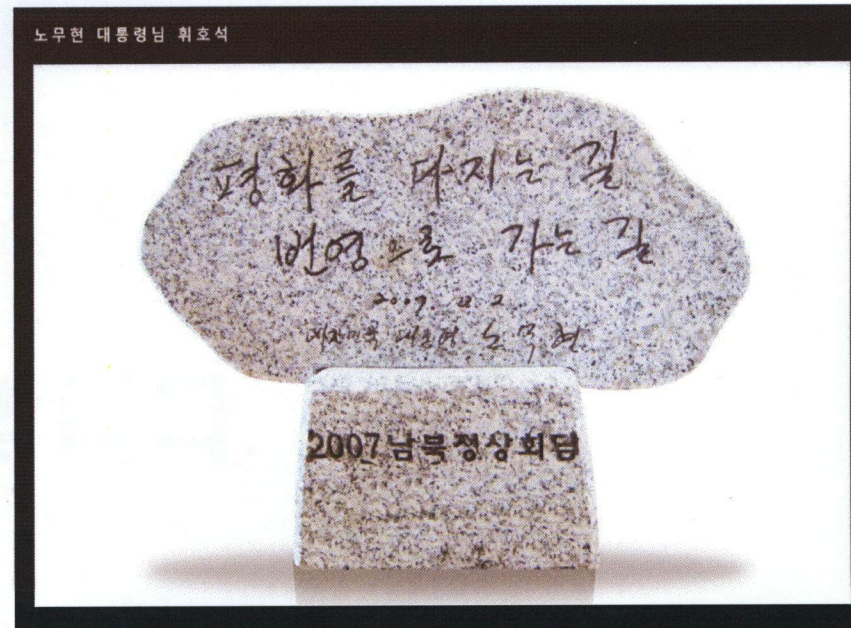 노무현 대통령님 휘호석
평화를 다지는 길
번영으로 가는 길
2007. 10. 2.
대한민국 대통령 노무현
2007 남북정상회담